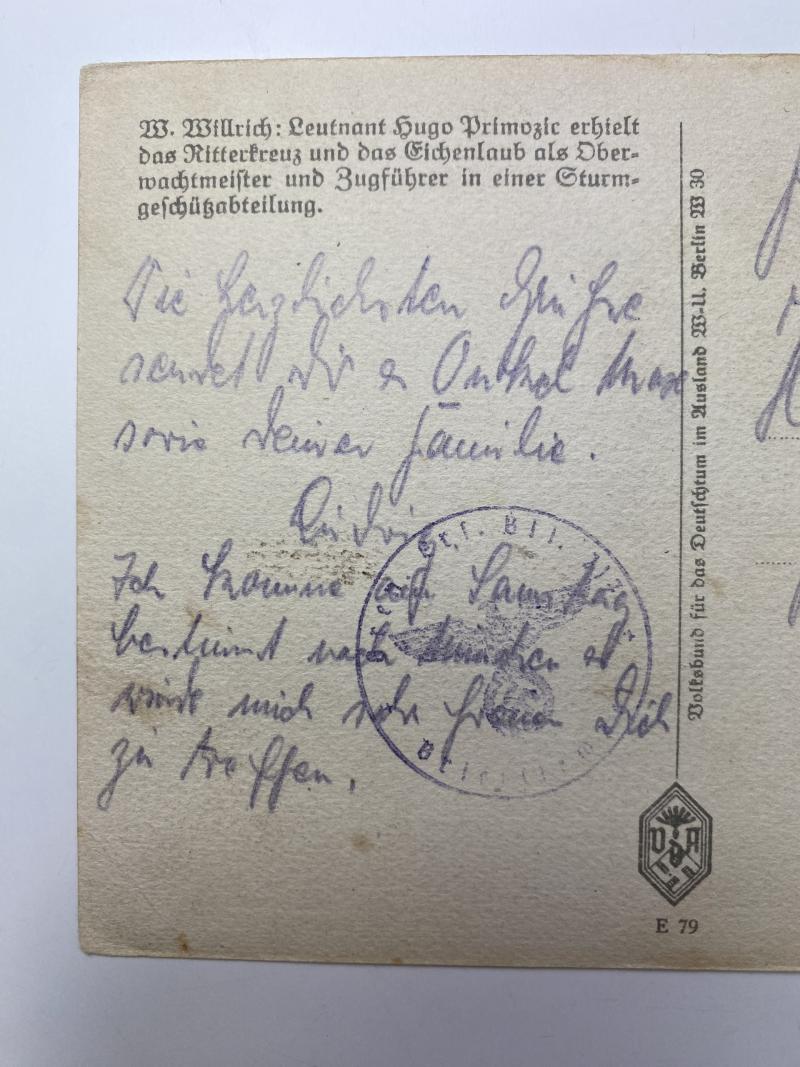 W. Willrich: Leutnant Hugo Primozic erhielt
das Ritterkreuz und das Eichenlaub als Ober-
wachtmeister und Zugführer in einer Sturm-
geschützabteilung.
Die herzlichsten Grüße
sendet Dir Onkel
sowie Deiner Familie.
Ludwig
Ich komme auf Samstag
bestimmt nach München
würde mich sehr freuen Dich
zu treffen.
Volksbund für das Deutschtum im Ausland W-U. Berlin W 30
VDA
E 79